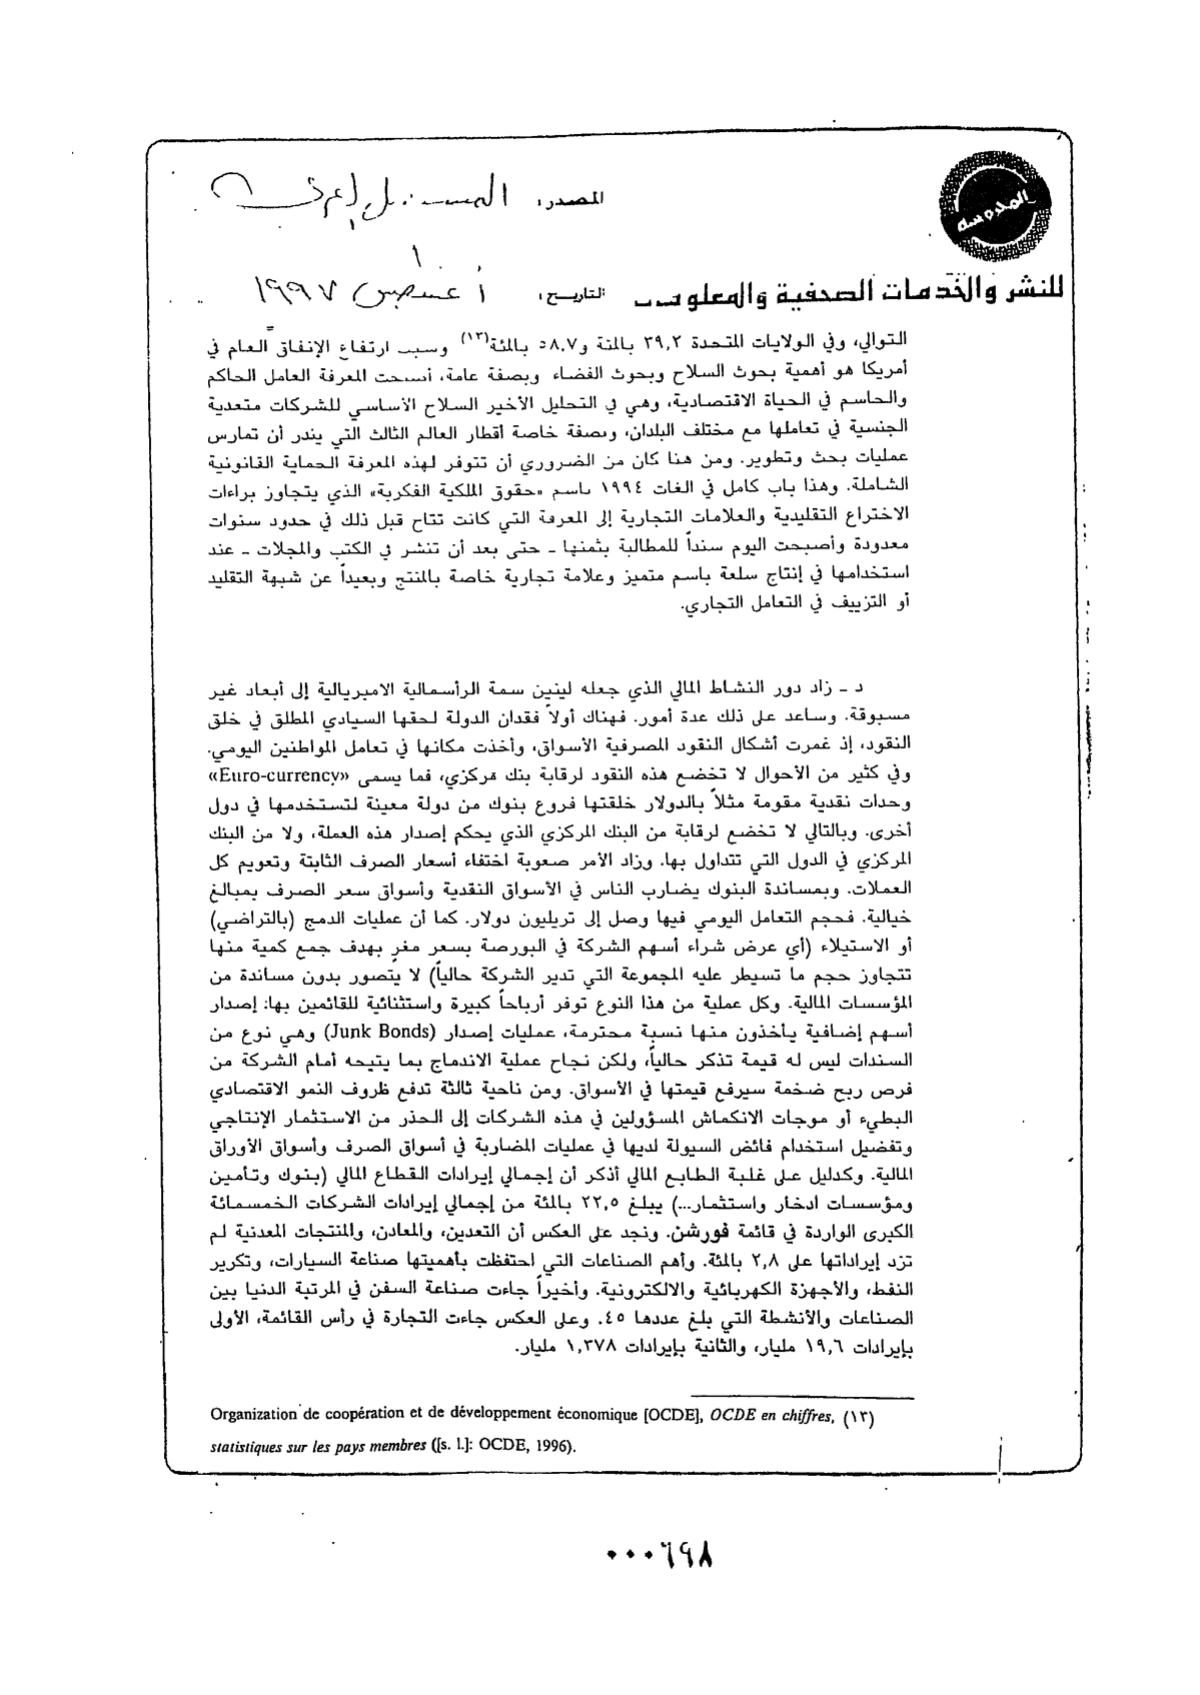 المدوسة
المصدر: المستقبل العربي
للنشر والخدمات الصحفية والمعلومات
التاريخ: أغسطس ١٩٩٧
التوالي، وفي الولايات المتحدة ٣٩,٢ بالمئة و٥٨,٧ بالمئة(١٣) وسبب ارتفاع الإنفاق العام في
أمريكا هو أهمية بحوث السلاح وبحوث الفضاء وبصفة عامة، أصبحت المعرفة العامل الحاكم
والحاسم في الحياة الاقتصادية، وهي في التحليل الأخير السلاح الأساسي للشركات متعدية
الجنسية في تعاملها مع مختلف البلدان، وبصفة خاصة أقطار العالم الثالث التي يندر أن تمارس
عمليات بحث وتطوير. ومن هنا كان من الضروري أن تتوفر لهذه المعرفة الحماية القانونية
الشاملة. وهذا باب كامل في الغات ١٩٩٤ باسم «حقوق الملكية الفكرية» الذي يتجاوز براءات
الاختراع التقليدية والعلامات التجارية إلى المعرفة التي كانت تتاح قبل ذلك في حدود سنوات
معدودة وأصبحت اليوم سنداً للمطالبة بثمنها - حتى بعد أن تنشر في الكتب والمجلات - عند
استخدامها في إنتاج سلعة باسم متميز وعلامة تجارية خاصة بالمنتج وبعيداً عن شبهة التقليد
أو التزييف في التعامل التجاري.
د - زاد دور النشاط المالي الذي جعله لينين سمة الرأسمالية الامبريالية إلى أبعاد غير
مسبوقة. وساعد على ذلك عدة أمور. فهناك أولاً فقدان الدولة لحقها السيادي المطلق في خلق
النقود، إذ غمرت أشكال النقود المصرفية الأسواق، وأخذت مكانها في تعامل المواطنين اليومي.
وفي كثير من الأحوال لا تخضع هذه النقود لرقابة بنك مركزي، فما يسمى «Euro-currency»
وحدات نقدية مقومة مثلاً بالدولار خلقتها فروع بنوك من دولة معينة لتستخدمها في دول
أخرى. وبالتالي لا تخضع لرقابة من البنك المركزي الذي يحكم إصدار هذه العملة، ولا من البنك
المركزي في الدول التي تتداول بها. وزاد الأمر صعوبة اختفاء أسعار الصرف الثابتة وتعويم كل
العملات. وبمساندة البنوك يضارب الناس في الأسواق النقدية وأسواق سعر الصرف بمبالغ
خيالية. فحجم التعامل اليومي فيها وصل إلى تريليون دولار. كما أن عمليات الدمج (بالتراضي)
أو الاستيلاء (أي عرض شراء أسهم الشركة في البورصة بسعر مغرٍ بهدف جمع كمية منها
تتجاوز حجم ما تسيطر عليه المجموعة التي تدير الشركة حالياً) لا يتصور بدون مساندة من
المؤسسات المالية. وكل عملية من هذا النوع توفر أرباحاً كبيرة واستثنائية للقائمين بها: إصدار
أسهم إضافية يأخذون منها نسبة محترمة، عمليات إصدار (Junk Bonds) وهي نوع من
السندات ليس له قيمة تذكر حالياً، ولكن نجاح عملية الاندماج بما يتيحه أمام الشركة من
فرص ربح ضخمة سيرفع قيمتها في الأسواق. ومن ناحية ثالثة تدفع ظروف النمو الاقتصادي
البطيء أو موجات الانكماش المسؤولين في هذه الشركات إلى الحذر من الاستثمار الإنتاجي
وتفضيل استخدام فائض السيولة لديها في عمليات المضاربة في أسواق الصرف وأسواق الأوراق
المالية. وكدليل على غلبة الطابع المالي أذكر أن إجمالي إيرادات القطاع المالي (بنوك وتأمين
ومؤسسات ادخار واستثمار...) يبلغ ٢٢,٥ بالمئة من إجمالي إيرادات الشركات الخمسمائة
الكبرى الواردة في قائمة فورشن. ونجد على العكس أن التعدين، والمعادن، والمنتجات المعدنية لم
تزد إيراداتها على ٢,٨ بالمئة. وأهم الصناعات التي احتفظت بأهميتها صناعة السيارات، وتكرير
النفط، والأجهزة الكهربائية والالكترونية. وأخيراً جاءت صناعة السفن في المرتبة الدنيا بين
الصناعات والأنشطة التي بلغ عددها ٤٥. وعلى العكس جاءت التجارة في رأس القائمة، الأولى
بإيرادات ١٩,٦ مليار، والثانية بإيرادات ١,٣٧٨ مليار.
Organization de coopération et de développement économique [OCDE], OCDE en chiffres, (١٣)
statistiques sur les pays membres ([s. l.]: OCDE, 1996).
٠٠٠٦٩٨